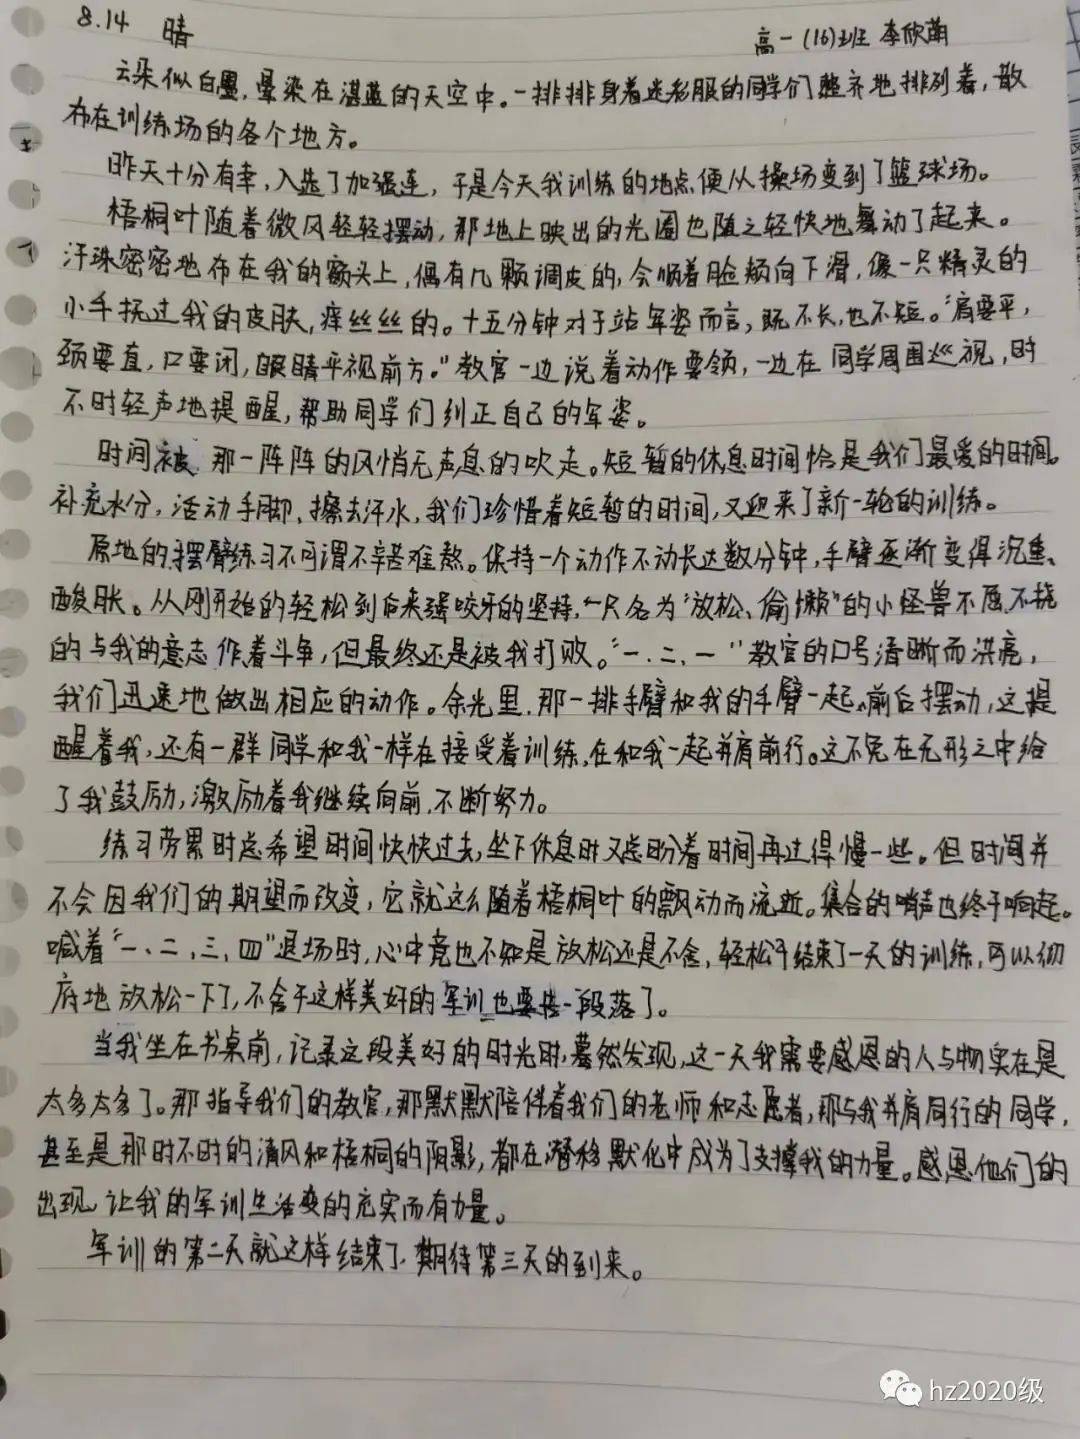 8.14 晴
高一(16)班 李欣萌
云朵似白墨,晕染在湛蓝的天空中。一排排身着迷彩服的同学们整齐地排列着,散
布在训练场的各个地方。
昨天十分有幸,入选了加强连,于是今天我训练的地点便从操场变到了篮球场。
梧桐叶随着微风轻轻摆动,那地上映出的光圈也随之轻快地舞动了起来。
汗珠密密地布在我的额头上,偶有几颗调皮的,会顺着脸颊向下滑,像一只精灵的
小手抚过我的皮肤,痒丝丝的。十五分钟对于站军姿而言,既不长,也不短。“肩要平,
颈要直,口要闭,眼睛平视前方。”教官一边说着动作要领,一边在同学周围巡视,时
不时轻声地提醒,帮助同学们纠正自己的军姿。
时间被那一阵阵的风悄无声息的吹走。短暂的休息时间恰是我们最爱的时间。
补充水分,活动手脚,擦去汗水,我们珍惜着短暂的时间,又迎来了新一轮的训练。
原地的摆臂练习不可谓不辛苦难熬。保持一个动作不动长达数分钟,手臂逐渐变得沉重、
酸胀。从刚开始的轻松到后来强咬牙的坚持,一只名为“放松、偷懒”的小怪兽不屈不挠
的与我的意志作着斗争,但最终还是被我打败。“一、二、一”教官的口号清晰而洪亮,
我们迅速地做出相应的动作。余光里,那一排手臂和我的手臂一起前后摆动,这提
醒着我,还有一群同学和我一样在接受着训练,在和我一起并肩前行。这不免在无形之中给
了我鼓励,激励着我继续向前,不断努力。
练习劳累时总希望时间快快过去,坐下休息时又总盼着时间再过得慢一些。但时间并
不会因我们的期望而改变,它就这么随着梧桐叶的飘动而流逝。集合的哨声也终于响起。
喊着“一、二、三、四”退场时,心中竟也不知是放松还是不舍,轻松于结束了一天的训练,可以彻
底地放松一下了,不舍于这样美好的军训也要告一段落了。
当我坐在书桌前,记录这段美好的时光时,蓦然发现,这一天我需要感恩的人与物实在是
太多太多了。那指导我们的教官,那默默陪伴着我们的老师和志愿者,那与我并肩同行的同学,
甚至是那时不时的清风和梧桐的阴影,都在潜移默化中成为了支撑我的力量。感恩他们的
出现,让我的军训生活变的充实而有力量。
军训的第二天就这样结束了,期待第三天的到来。
hz2020级